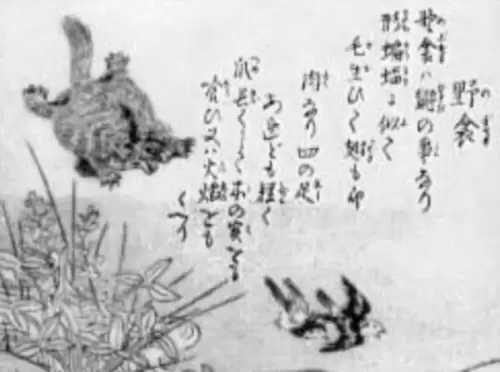 野衾
野衾ハ鼯の事なり
形蝙蝠に似て
毛生ひて翅も即
肉なり四の足
あれども短く
爪長くして木の実をも
喰ひ又ハ火焔をも
くへり